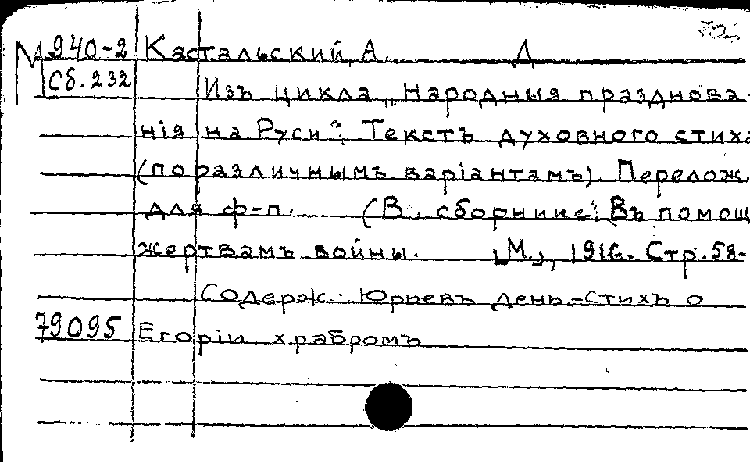 М 940-2 Кастальский, А. Д
Сб. 232
Изъ цикла „Народныя празднова-
нія на Руси“. Текстъ духовного стиха
(по различнымъ варіантамъ). Перелож.
для ф-п. (В сборнике: Въ помощ
жертвамъ войны. М., 1916. Стр. 58-
Содерж.: Юрьевъ день-стихъ о
79095 Егоріи храбромъ